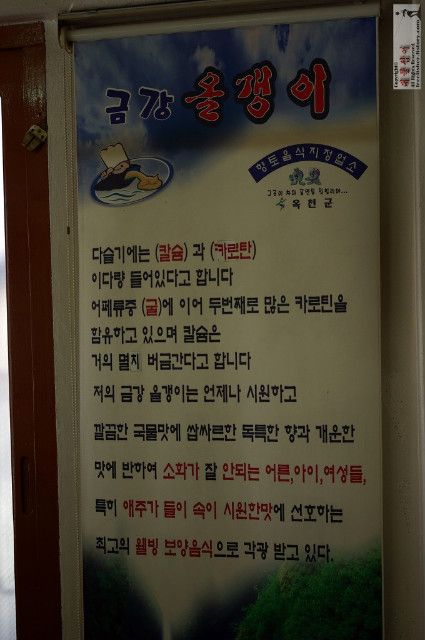 금강 올갱이
향토음식지정업소
옥천군
다슬기에는 (칼슘) 과 (카로탄)
이다량 들어있다고 합니다
어페류중 (굴)에 이어 두번째로 많은 카로틴을
함유하고 있으며 칼슘은
거의 멸치 버금간다고 합니다
저의 금강 올갱이는 언제나 시원하고
깔끔한 국물맛에 쌉싸르한 독특한 향과 개운한
맛에 반하여 소화가 잘 안되는 어른,아이,여성들,
특히 애주가 들이 속이 시원한맛에 선호하는
최고의 웰빙 보양음식으로 각광 받고 있다.